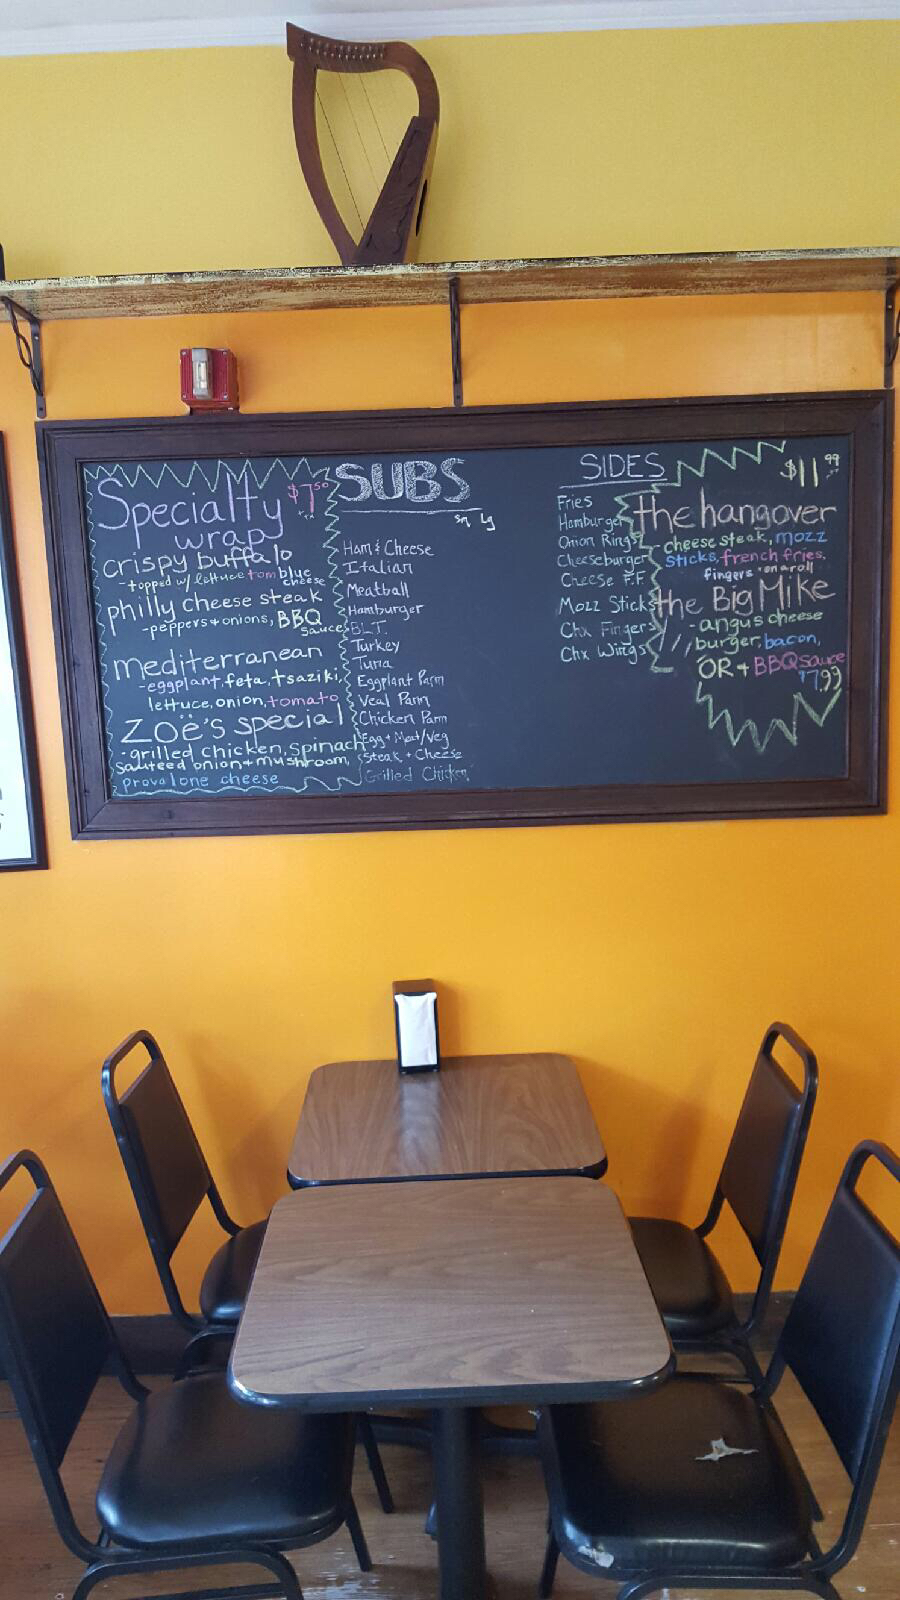 Specialty
wrap
$7.50
+tx
crispy buffalo
-topped w/ lettuce tom blue
cheese
philly cheese steak
-peppers + onions, BBQ
sauce
mediterranean
-eggplant, feta, tsaziki,
lettuce, onion, tomato
Zoë's special
-grilled chicken, spinach
sauteed onion + mushroom,
provalone cheese
SUBS
Sm Lg
Ham & Cheese
Italian
Meatball
Hamburger
B.L.T.
Turkey
Tuna
Eggplant Parm
Veal Parm
Chicken Parm
Egg + Meat/Veg
Steak + Cheese
Grilled Chicken
SIDES
Fries
Hamburger
Onion Rings
Cheeseburger
Cheese F.F.
Mozz Sticks
Chx Fingers
Chx Wings
$11.99
the hangover
cheese steak, mozz
sticks, french fries,
fingers on a roll
the Big Mike
-angus cheese
burger, bacon,
OR + BBQ sauce
$7.99